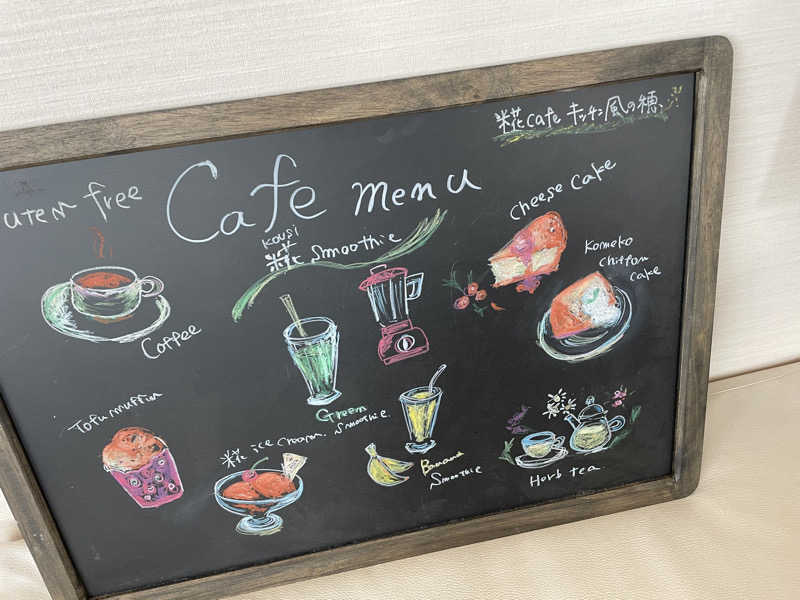 糀cafe キッチン風の穂
uten free
Cafe menu
Kousi
糀 Smoothie
Cheese cake
Komeko
chiffon
cake
Coffee
Green
Smoothie
Tofu muffin
糀 ice cream. Smoothie
Banana
Smoothie
Herb tea